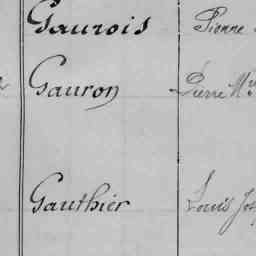 Gaurois Pierre
Gauron Pierre M
Gauthier Louis Jos